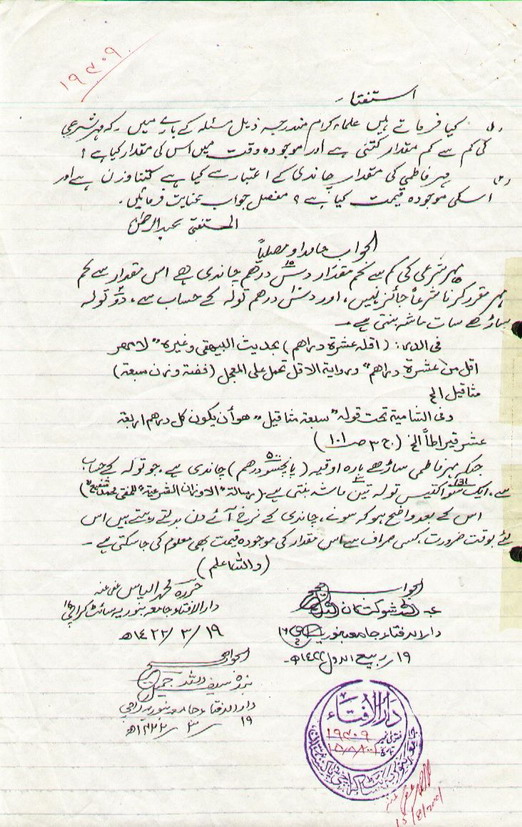 ۱۹۴۰۹
استفتاء
۱) کیا فرماتے ہیں علماء کرام مندرجہ ذیل مسئلہ کے بارے میں۔ کہ مہر شرعی
کی کم سے کم مقدار کتنی ہے اور موجودہ وقت میں اس کی مقدار کیا ہے؟
۲) مہر فاطمی کی مقدار چاندی کے اعتبار سے کیا ہے کتنا وزن ہے اور
اسکی موجودہ قیمت کیا ہے؟ مفصل جواب عنایت فرمائیں۔
المستفتی عبدالرحمٰن
الجواب حامداً ومصلیاً
مہر شرعی کی کم سے کم مقدار دس ۱۰ درھم چاندی ہے اس مقدار سے کم
مہر مقرر کرنا شرعاً جائز نہیں، اور دس درھم تولہ کے حساب سے، دو تولہ
ساڑھے سات ماشہ بنتی ہے۔
فی الدر: (اقلہ عشرۃ دراھم) بحدیث البیھقی وغیرہ "لا مھر
اقل من عشرۃ دراھم" وروایۃ الاقل تحمل علی المعجل (فضۃ وزن سبعۃ)
مثاقیل الخ
وفی الشامیۃ تحت قولہ "سبعۃ مثاقیل" ھو أن یکون کل درھم اربعۃ
عشر قیراطاً الخ (ج ۳ ص ۱۰۱)
جبکہ مہر فاطمی ساڑھے بارہ اوقیہ (پانچسو ۵۰۰ درھم) چاندی ہے۔ جو تولہ کے حساب
سے، ایک سو اکتیس ۱۳۱ تولہ تین ماشہ بنتی ہے۔ (رسالہ "الاوزان الشرعیۃ" للمفتی محمد شفیع)
اس کے بعد واضح ہو کہ سونے، چاندی کے نرخ آئے دن بدلتے رہتے ہیں اس
لئے بوقت ضرورت کسی صراف سے اس مقدار کی موجودہ قیمت بھی معلوم کی جاسکتی ہے۔
(واللہ اعلم)
حررہ محمد الیاس عفی عنہ
دارالافتاء جامعہ بنوریہ سائٹ کراچی
۱۹/۳/۱۴۲۲ھ
الجواب صحیح
دارالافتاء جامعہ بنوریہ
۱۹/ ربیع الاول ۱۴۲۲ھ
الجواب صحیح
دارالافتاء جامعہ بنوریہ کراچی
۱۹ / ۳ / ۱۴۲۲ھ
دار الافتاء
فتویٰ نمبر ۱۹۴۰۹